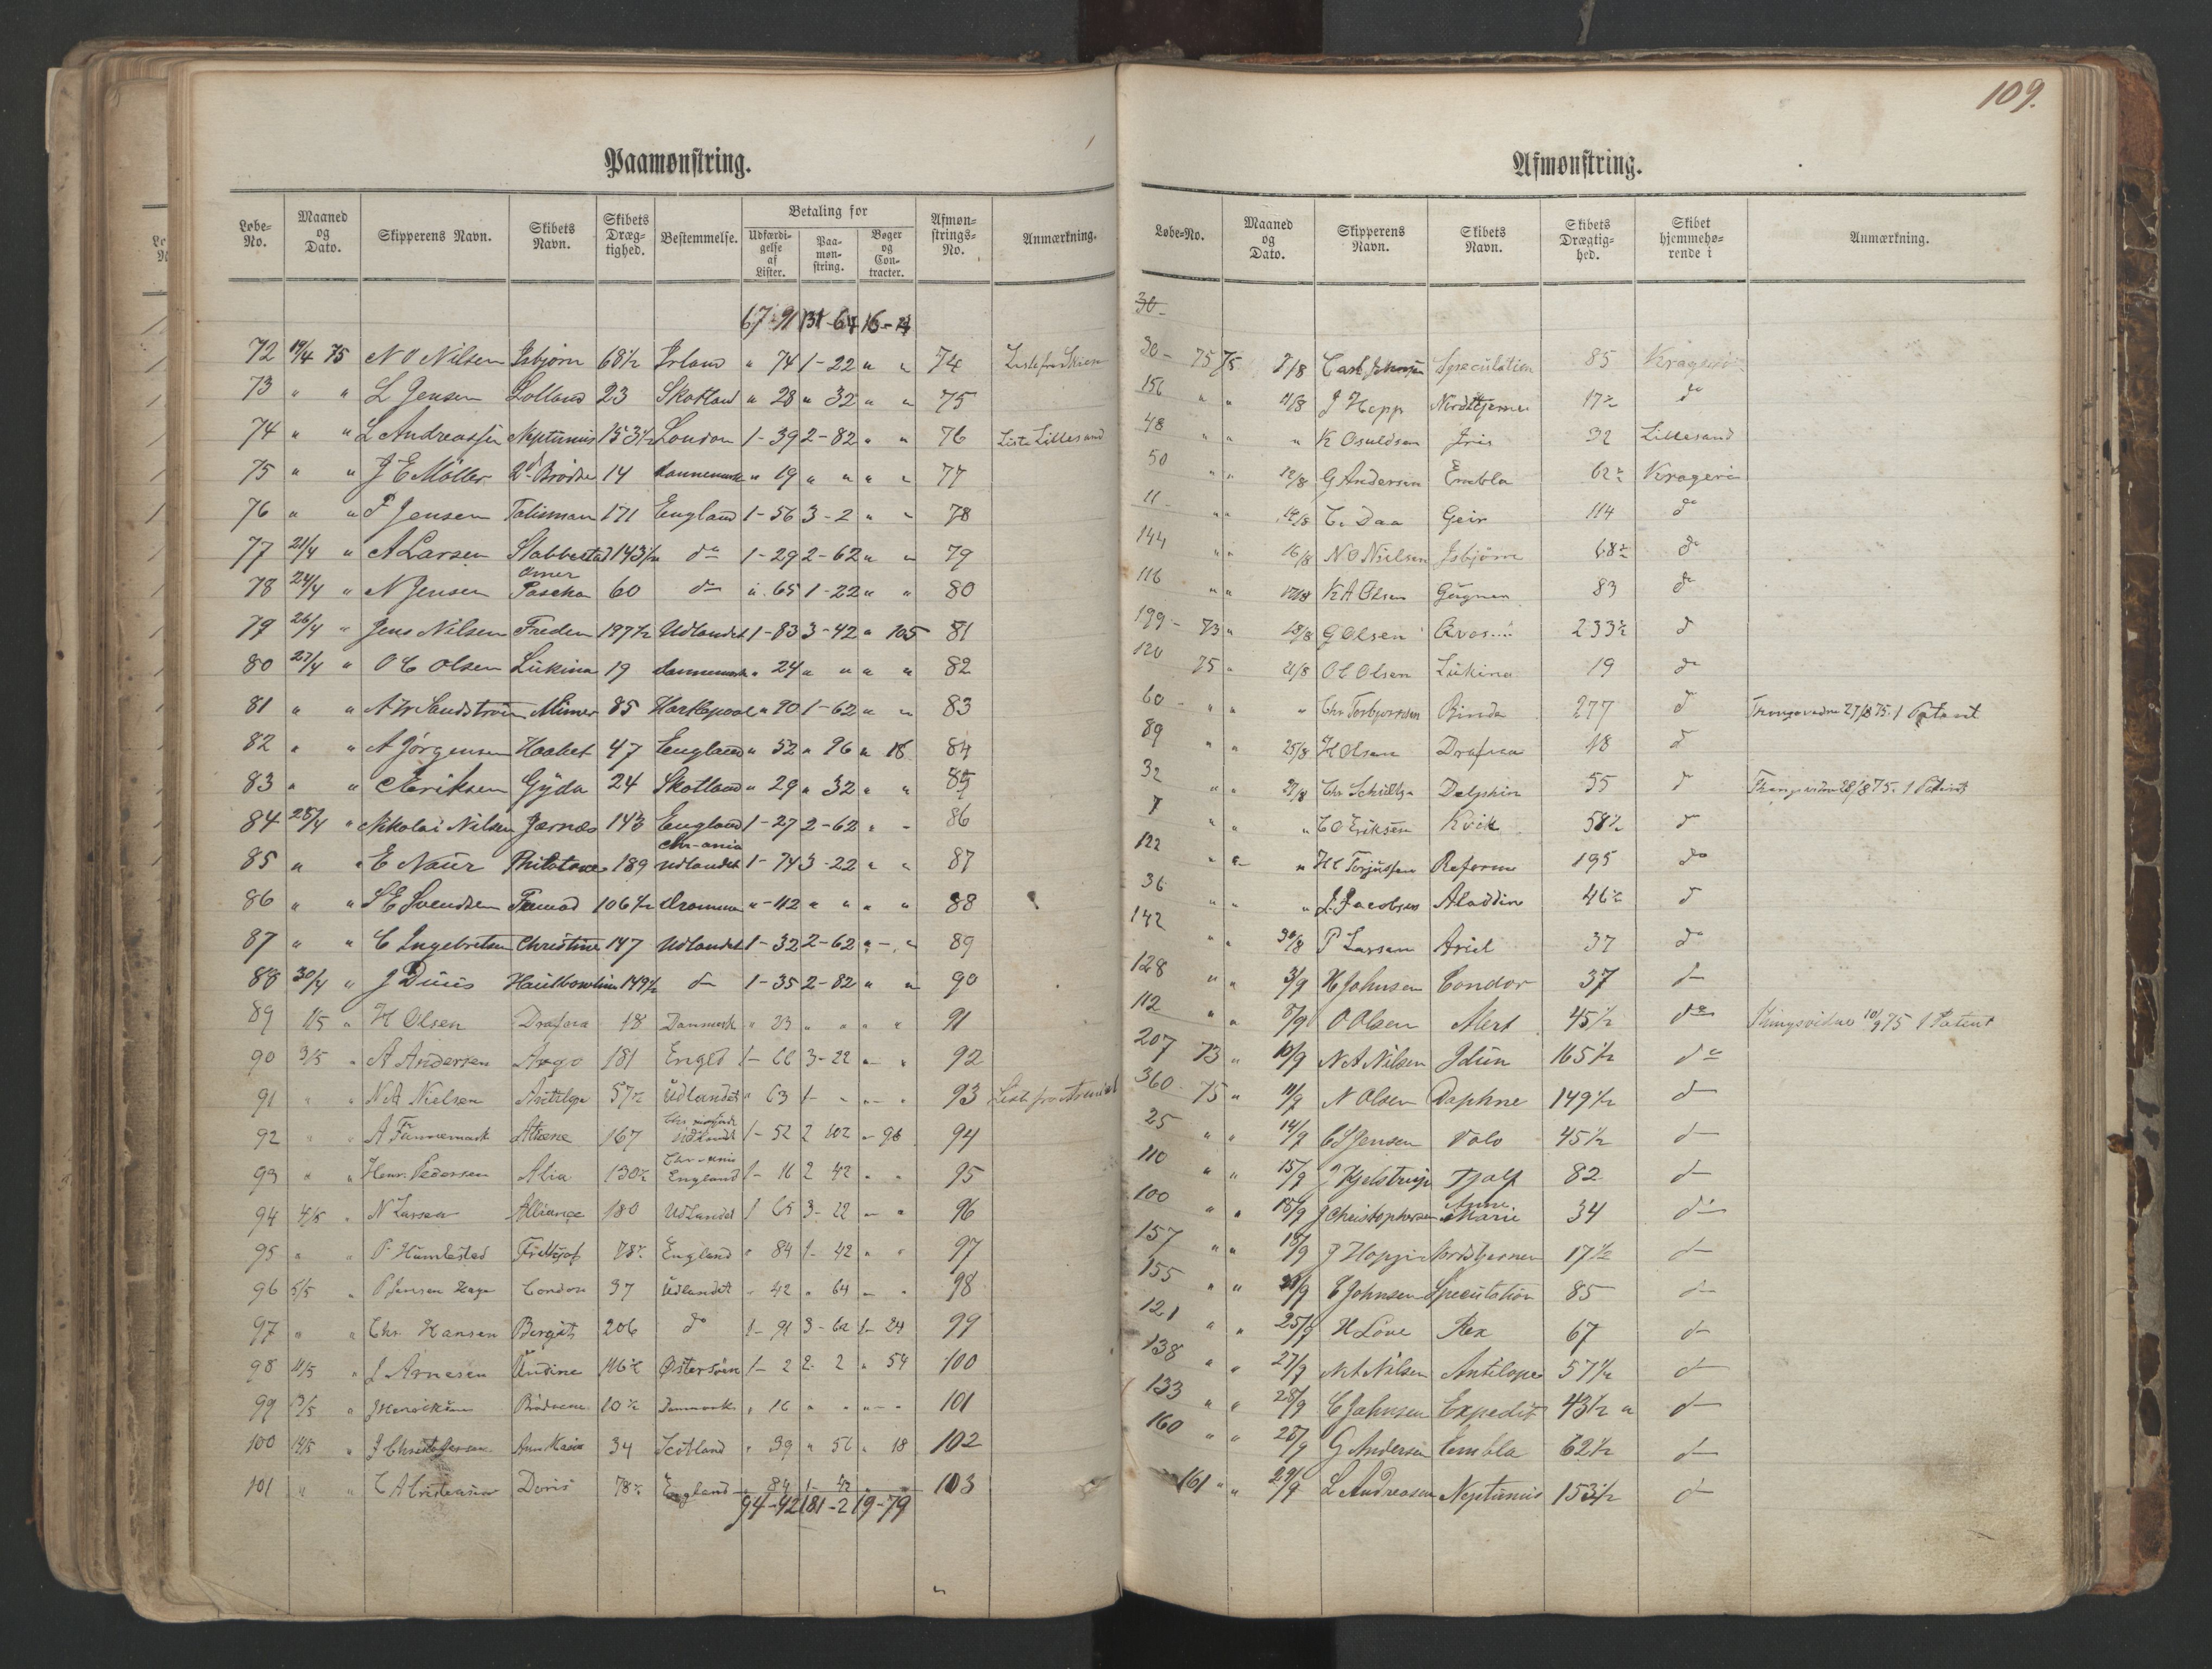 109.
Paamønstring.
Løbe-No. Maaned og Dato. Skipperens Navn. Skibets Navn. Skibets Dræg-tighed. Bestemmelse. Betaling for Udfærdi-gelse af Lister. Paa-møn-string. Bøger og Con-tracter. Afmøn-strings-No. Anmærkning.
67-91 131-64 16-
72 19/4 75 N O Nilsen Isbjørn 68½ Irland " 74 1-22 " " 74 Liste fra Skien
73 " " L Jensen Lolland 23 Skotland " 28 " 32 " " 75
74 " " L Andreassen Neptunus 153½ London 1-39 2-82 " " 76 Liste Lillesand
75 " " J E Møller 2de Brødre 14 Dannemark " 19 " " " " 77
76 " " P Jensen Talisman 171 England 1-56 3-2 " " 78
77 21/4 " A Larsen Stabbestad 143½ do 1-29 2-62 " " 79
78 24/4 " N Jensen Omer Pascha 60 do " 65 1-22 " " 80
79 26/4 " Jens Nilsen Freden 197½ Udlandet 1-83 3-42 " 105 81
80 27/4 " O C Olsen Lükina 19 Dannemark " 24 " " " " 82
81 " " A W Sandström Mimer 85 Hartlepool " 90 1-62 " " 83
82 " " A Jørgensen Haabet 47 England " 52 " 96 " 18 84
83 " " C Eriksen Gÿda 24 Skotland " 29 " 32 " " 85
84 28/4 " Nikolai Nilsen Jernæs 143 England 1-27 2-62 " - 86
85 " " E Naür 189 Chr-ania Udlandet 1-74 3-22 " " 87
86 " " S E Svendsen 106½ Drammen " -112 " " " " 88
87 " " C Ingebretsen Christine 147 Udlandet 1-32 2-62 " - " 89
88 30/4 " J Düüs Haulbowline 149½ do 1-35 2-82 " " 90
89 1/5 " H Olsen Drafna 18 Danmark " 23 " " " " 91
90 3/5 " A Andersen Argo 181 Engld 1-66 3-22 " " 92
91 " " N A Nielsen Antilope 57½ Üdlandet " 63 1- " " " 93 Liste fra Arendal
92 " " A Athene 167 Udlandet 1-52 2 102 " 96 94
93 " " Henr. Pedersen 130½ Chr-ania England 1-16 2 42 " " 95
94 4/5 " N Larsen Alliance 180 Udlandet 1 65 3-22 " " 96
95 " " P Humlestad Frithjof 78½ England " 84 1-42 " " 97
96 5/5 " P Jensen Haga Condor 37 Üdlandet " 42 " 64 " " 98
97 " " Chr. Hansen Bergit 206 do 1-91 3-62 1-24 99
98 11/5 " J Arnesen Ündine 116½ Østersøen 1-2 2 2 " 54 100
99 13/5 " J Henriksen Brødrene 10½ Danmark " 16 " " " - " 101
100 14/5 " J Christofersen Anna Marie 34 Scotland " 39 " 56 " 18 102
101 " " C A Christensen Doris 78½ England " 84 1-42 " " 103
94-42 181-2 19-79
Afmønstring.
Løbe-No. Maaned og Dato. Skipperens Navn. Skibets Navn. Skibets Drægtig-hed. Skibet hjemmehø-rende i Anmærkning.
30-
30- 75 75 7/8 Carl Johnsen Speculation 85 Kragerø
156 " " 11/8 J Hopp Nordstjernen 17½ do
48 " " " K Osuldsen Iris 32 Lillesand
50 " " 12/8 G Andersen Embla 62½ Kragerø
11- " " 14/8 C. Daa Geir 114 do
144 " " 16/8 N O Nielsen Isbjörn 68½ do
116 " " 17/8 K A Olsen Gügner 83 do
199- 73 " 18/8 G Olsen 233½ d
120 75 " 21/8 O C Olsen Lükina 19 do
60- " " " Chr Torbjørnsen 277 d Thingsvidne 27/8 75. 1 Patent
89 " " 25/8 H Olsen Drafna 18 d
32 " " 27/8 Chr Schultze Delphin 55 d Thingsvidne 28/8 75. 1 Patent
7 " " " C O Eriksen Kvik 58½ d
122 " " " H C Torjussen Reform 195 do
36 " " " J. Jacobsen Aladdin 46½ d
142 " " 30/8 P Larsen Ariel 37 do
128 " " 3/9 H Johnsen Condor 37 do
112 " " 8/9 O Olsen Alert 45½ do Thingsvidne 10/9 75 1 Patent
207 73 " 10/9 N A Nilsen Idün 165½ do
360- 75 " 11/9 N Olsen Daphne 149½ do
25 " " 14/9 C S Jensen Valo 45½ do
110 " " 15/9 J Hjelstrup Tjalf 82 do
100 " " 18/9 J Christophersen Anne Marie 34 do
157 " " 18/9 J Hopp Nordstjernen 17½ do
155 " " 21/9 C Johnsen Speculation 85 do
121 " " 25/9 H Löve Rex 67 do
138 " " 27/9 N A Nilsen Antilope 57½ do
133 " " 28/9 C Johnsen Expedit 43½ " do
160 " " 28/9 G Andersen Embla 62½ do
161 " " 29/9 L Andreasen Neptunus 153½ do